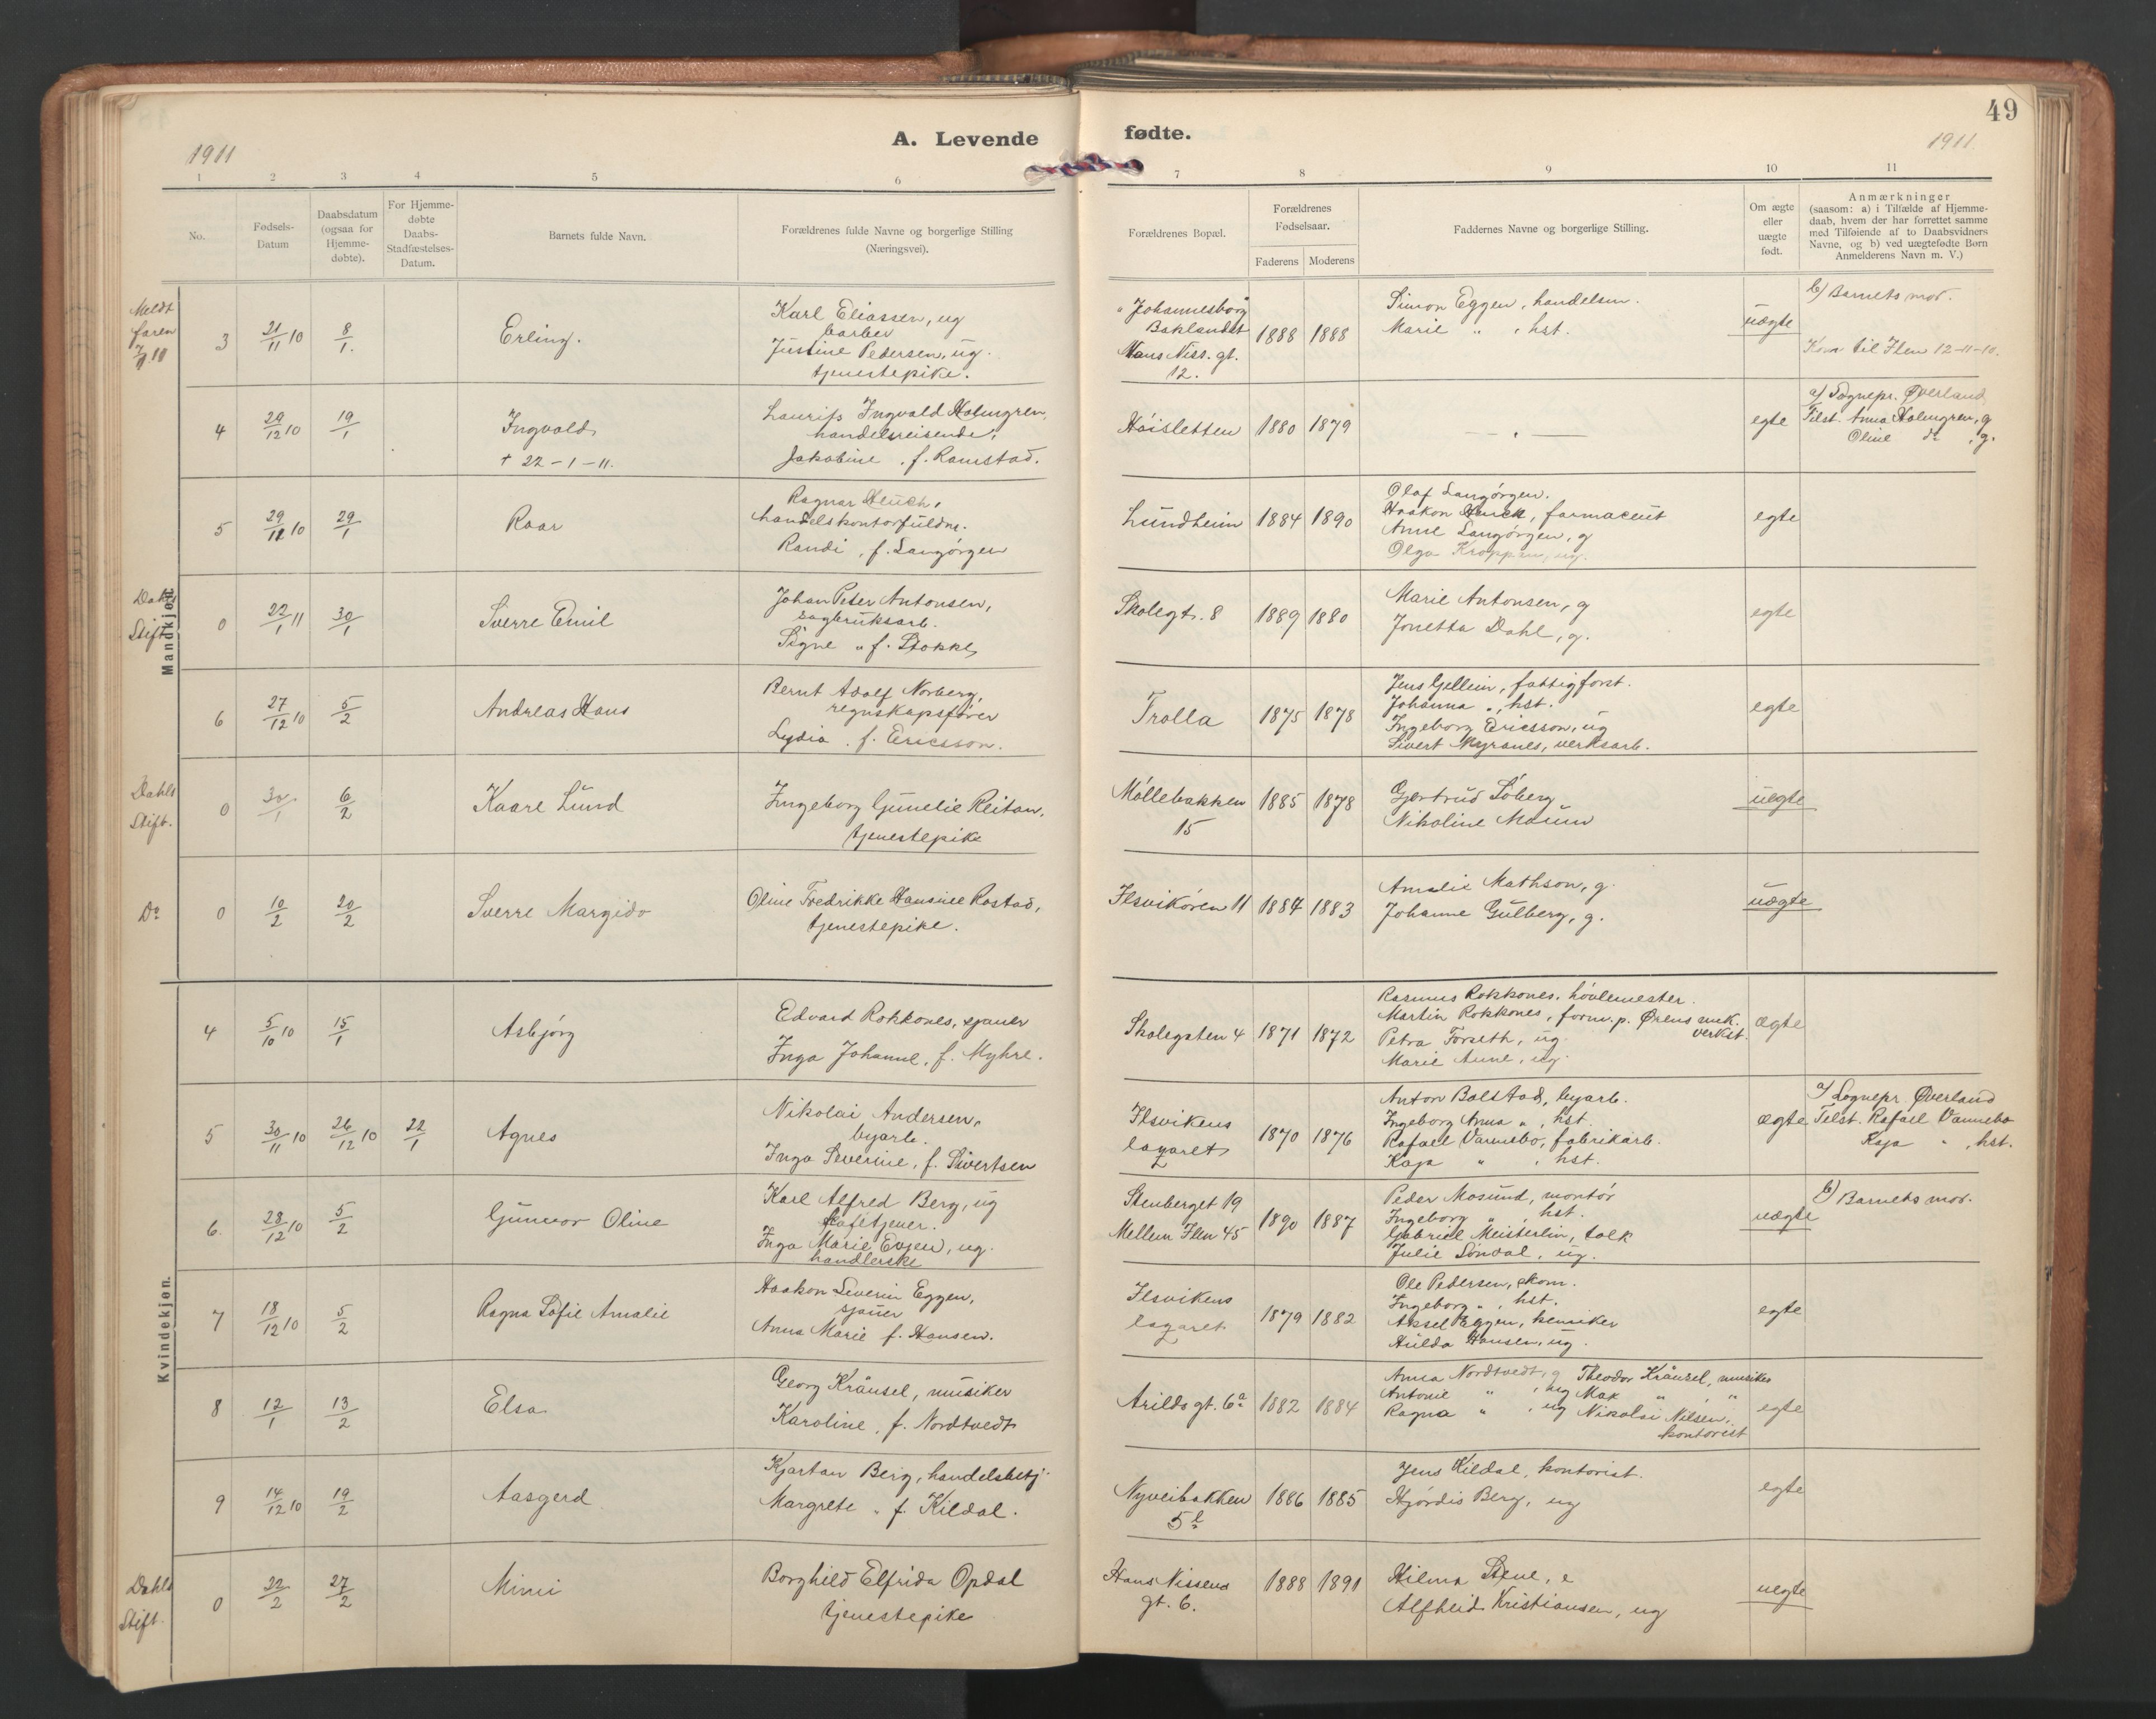 49
A. Levende fødte.
1911
1911.
1 2 3 4 5 6 7 8 9 10 11
No.
Fødsels-
Datum
Daabsdatum
(ogsaa for
Hjemme-
døbte).
For Hjemme-
døbte
Daabs-
Stadfæstelses-
Datum.
Barnets fulde Navn.
Forældrenes fulde Navne og borgerlige Stilling
(Næringsvei).
Forældrenes Bopæl.
Forældrenes
Fødselsaar.
Faderens Moderens
Faddernes Navne og borgerlige Stilling.
Om ægte
eller
uægte
født.
Anmærkninger
(saasom: a) i Tilfælde af Hjemme-
daab, hvem der har forrettet samme
med Tilføiende af to Daabsvidners
Navne, og b) ved uægtefødte Børn
Anmelderens Navn m. V.)
Mandkjøn.
Meldt
faren
3 21/11 10 8/1. Erling.
Karl Eliassen, ug
barber
Justine Pedersen, ug.
tjenestepike.
"Johannesborg"
Baklandet
Hans Niss. gt.
12.
1888 1888
Simon Eggen, handelsm.
Marie " , hst.
uægte
b) Barnets mor.
Kom til Ilen 12-11-10.
4 29/12 10 19/1 Ingvald
+ 22-1-11.
Laurits Ingvald Holmgren,
handelsreisende,
Jakobine , f. Ramstad.
Háisletten 1880 1879
— " —
egte
a) Sognepr. Øverland
Tilst. Anna Holmgren, g
Oline do , g.
5 29/11 10 29/1 Roar
Ragnar Huch,
handelskontorfuldm.
Randi , f. Langørgen
Lundheim 1884 1890
Olaf Langørgen.
Haakon Huch, farmaceut
Anne Langørgen, g
Olga Kroppan, ug.
egte
Dahls
Stift.
0 22/1 11 30/1 Sverre Emil
Johan Peter Antonsen,
sagbruksarb.
Signe " f. Stokke
Skolegt. 8 1889 1880
Marie Antonsen, g
Jonetta Dahl, g.
egte
6 27/12 10 5/2 Andreas Hans
Bernt Adolf Norberg,
regnskapsfører
Lydia . f. Ericsson.
Trolla 1875 1878
Jens Gellein, fattigforst.
Johanna " , hst.
Ingeborg Ericsson, ug
Sivert Myranes, verksarb.
egte
Dahls
Stift.
0 30/1 6/2 Kaare Lund
Ingeborg Gunelie Reitan,
tjenestepike
Møllebakken
15
1885 1878
Gjertrud Søberg
Nikoline Moum
uegte
Do
0 10/2 20/2 Sverre Margido
Oline Fredrikke Hansine Rostad,
tjenestepike.
Ilsvikøren 11 1884 1883
Amalie Mathson, g.
Johanne Gulberg, g.
uægte
Kvindekjøn.
4 5/10 10 15/1 Asbjørg
Edvard Rokkones, sjauer
Inga Johanne, f. Myhre.
Skolegaten 4 1871 1872
Rasmus Rokkones, høvlemester.
Martin Rokkones, form. p. Ørens mek.
verkst.
Petra Forseth, ug.
Marie Aune, ug.
ægte
5 30/11 10 26/12 10 22/1 Agnes
Nikolai Andersen,
byarb.
Inga Severine, f. Sivertsen
Ilsvikens
lazaret
1870 1876
Anton Bolstad, byarb.
Ingeborg Anna " , hst.
Rafael Vannebo, fabrikarb.
Kaja " , hst.
ægte
a) Sognepr. Øverland
Tilst. Rafael Vannebo
Kaja " , hst.
6. 28/12 10 5/2 Gunvor Oline
Karl Alfred Berg, ug
kafétjener.
Inga Marie Evjen, ug.
handlerske
Stenberget 19
Mellem Ilen 45
1890 1887
Peder Mosund, montør
Ingeborg " , hst.
Gabriel Meisterlin, tolk
Julie Sondal, ug.
uægte
b) Barnets mor.
7 18/12 10 5/2 Ragna Sofie Amalie
Haakon Severin Eggen,
sjauer
Anna Marie f. Hansen.
Ilsvikens
lazaret
1879 1882
Ole Pedersen, skom.
Ingeborg " , hst.
Aksel Eggen, kemiker
Hulda Hansen, ug.
egte
8 12/1 13/2 Elsa
Georg Kräusel, musiker
Karoline , f. Nordtvedt
Arilds gt. 6a 1882 1884
Anna Nordtvedt, g Theodor Kräusel, musiker
Antonie " , ug Max " , "
Ragna " , ug Nikolai Nilsen,
kontorist
egte
9 14/12 10 19/2 Aasgerd
Kjartan Berg, handelsbetj.
Margrete " f. Kildal.
Nyveibakken
5b
1886 1885
Jens Kildal, kontorist.
Hjørdis Berg, ug
egte
Dahls
Stift.
0 22/2 27/2 Mimi
Borghild Elfrida Opdal
tjenestepike
Hans Nissens
gt. 6.
1888 1891
Hilma Stene, e
Alfheid Kristiansen, ug
uegte